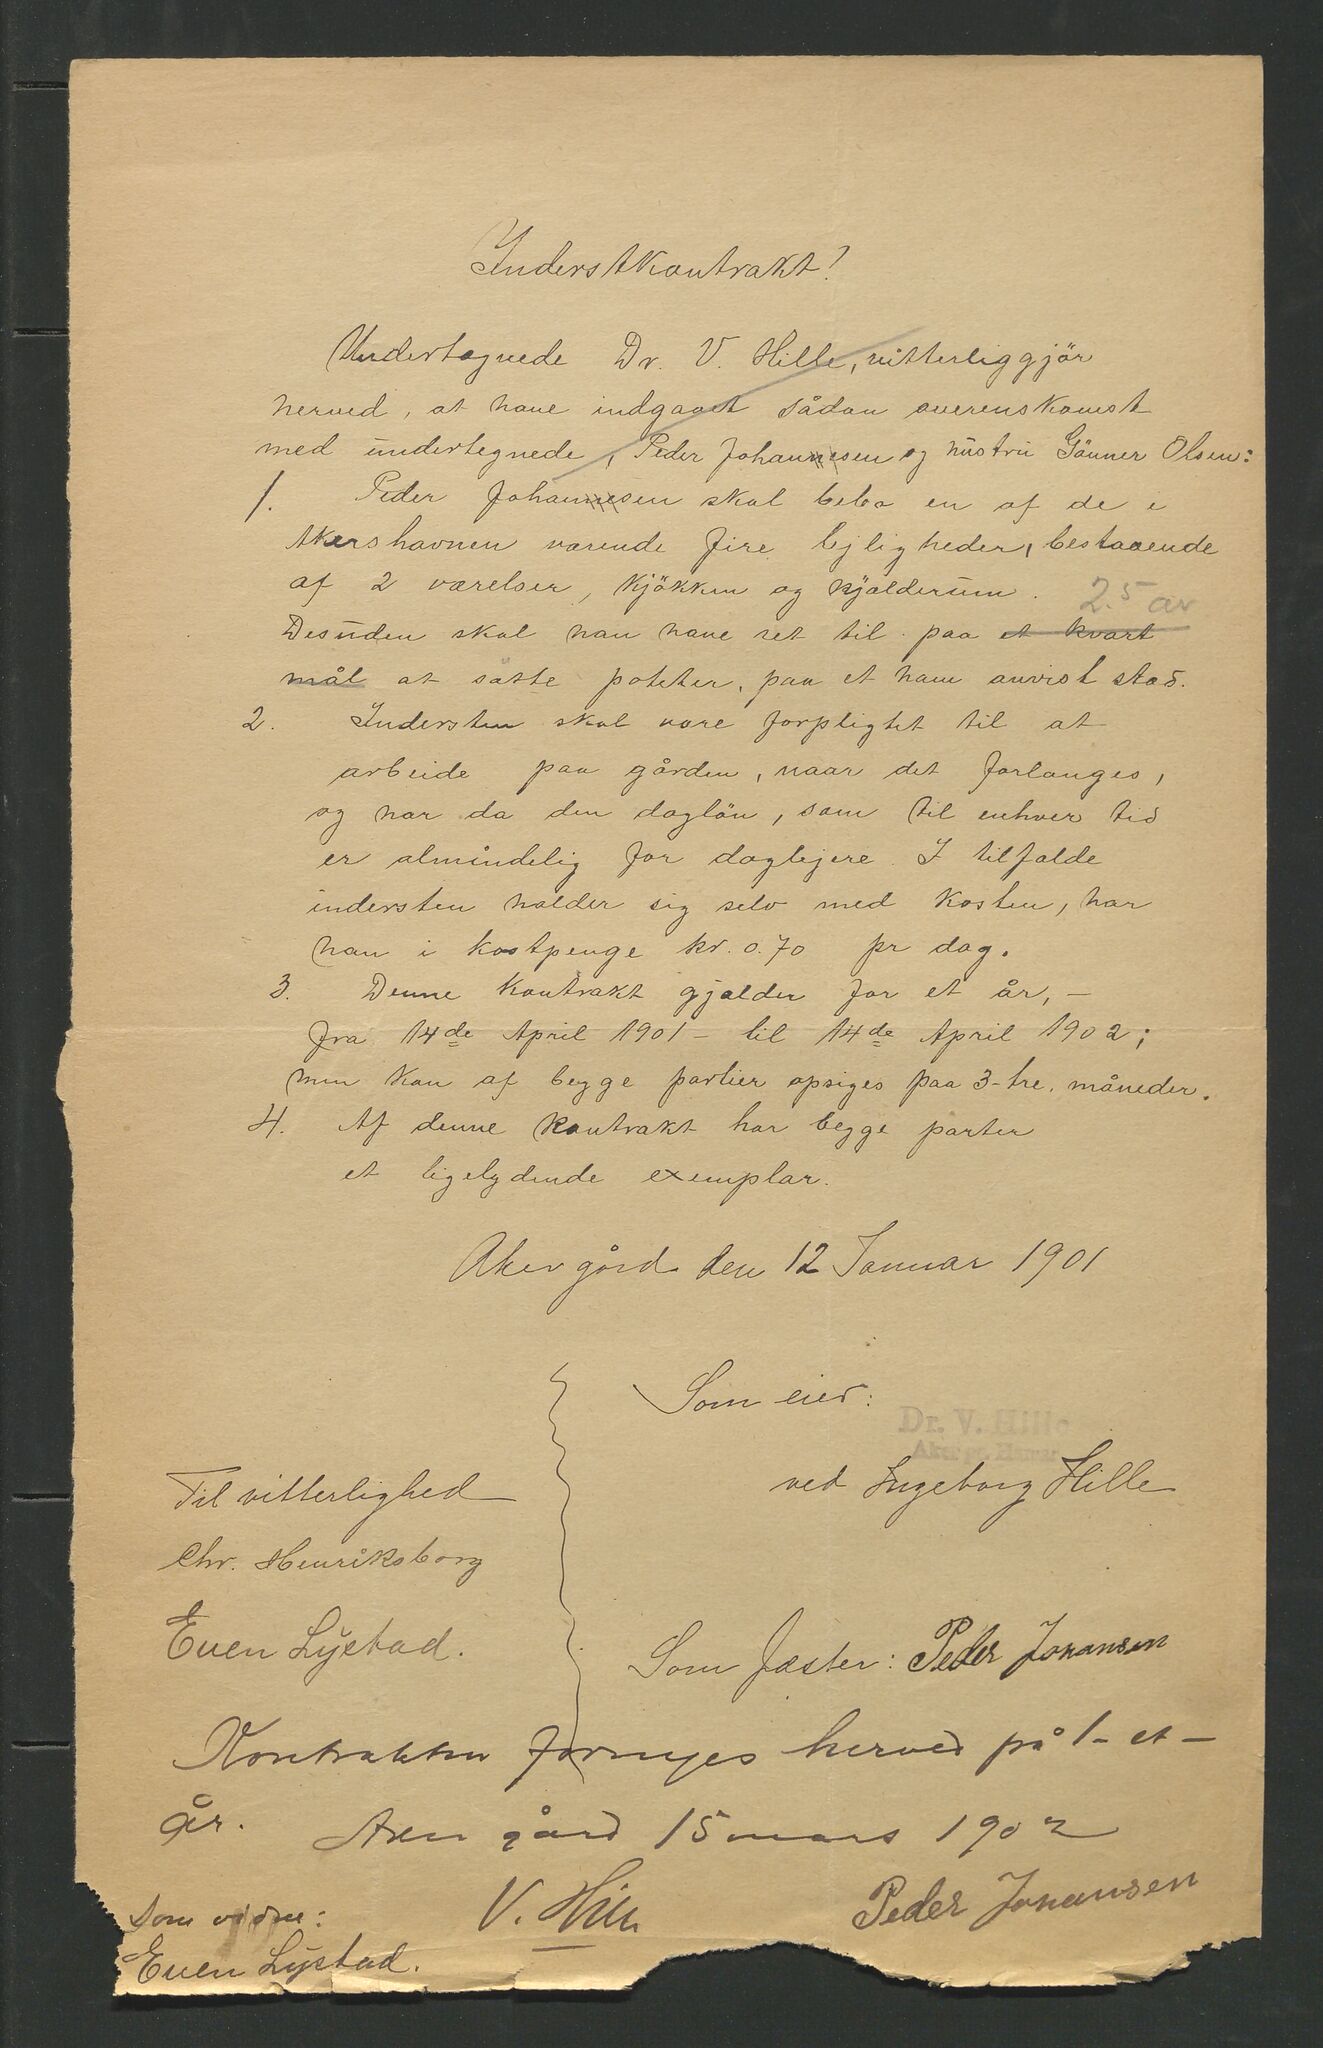 Inderstkontrakt!
Undertegnede Dr. V. Hille, vitterliggjör
herved, at have indgaaet sådan overenskomst
med undertegnede, Peder Johannesen og hustru Gönner Olsen:
1. Peder Johannesen skal bebo en af de i
Akershavnen værende fire lejligheder, bestaaende
af 2 værelser, kjökken og kjælderum.
2.5 ar
Desuden skal han have ret til paa et kvart
mål at sætte poteter, paa et ham anvist sted.
2. Indersten skal være forpligtet til at
arbeide paa gården, naar det forlanges,
og har da den daglön, som til enhver tid
er almindelig for daglejere. I tilfælde
indersten holder sig selv med kosten, har
han i kostpenge kr. 0.70 pr dag.
3. Denne kontrakt gjælder for et år, –
fra 14de April 1901 – til 14de April 1902;
men kan af begge partier opsiges paa 3-tre. måneder.
4. Af denne kontrakt har begge parter
et ligelydende exemplar.
Aker gård den 12 Januar 1901
Som eier:
Dr. V. Hille
Aker pr. Hamar
ved Ingeborg Hille
Til vitterlighed
Chr. Henriksborg
Even Lystad.
Som fæster: Peder Johansen
Kontrakten fornyes herved på 1 – et –
år. Aker gård 15 mars 1902
V. Hille
Peder Johansen
Som vidne:
Even Lystad.